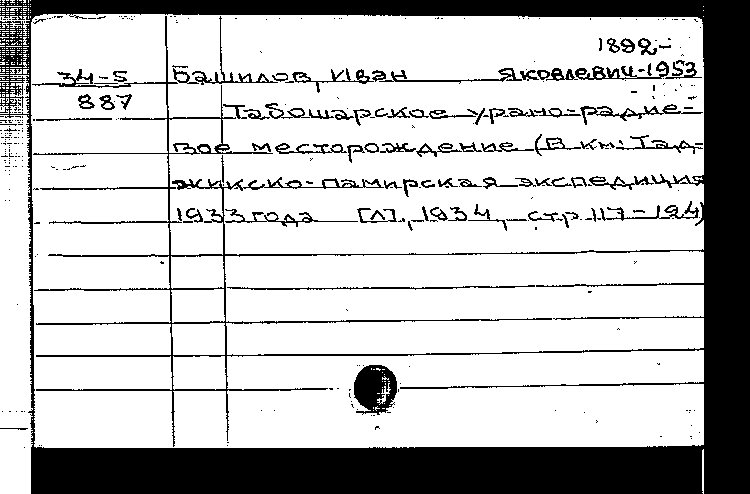 1892-
34-5 Башилов, Иван Яковлевич-1953
887
Табошарское урано-радие-
вое месторождение (В кн: Тад-
жикско-памирская экспедиция
1933 года [Л]., 1934, стр 117-124)